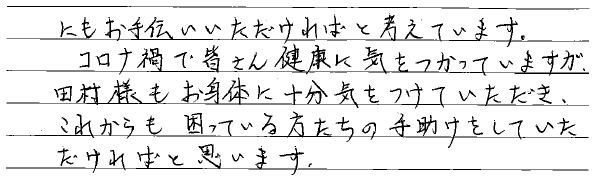 にもお手伝いいただければと考えています。
コロナ禍で皆さん健康に気をつかっていますが、
田村様もお身体に十分気をつけていただき、
これからも困っている方たちの手助けをしていた
だければと思います。